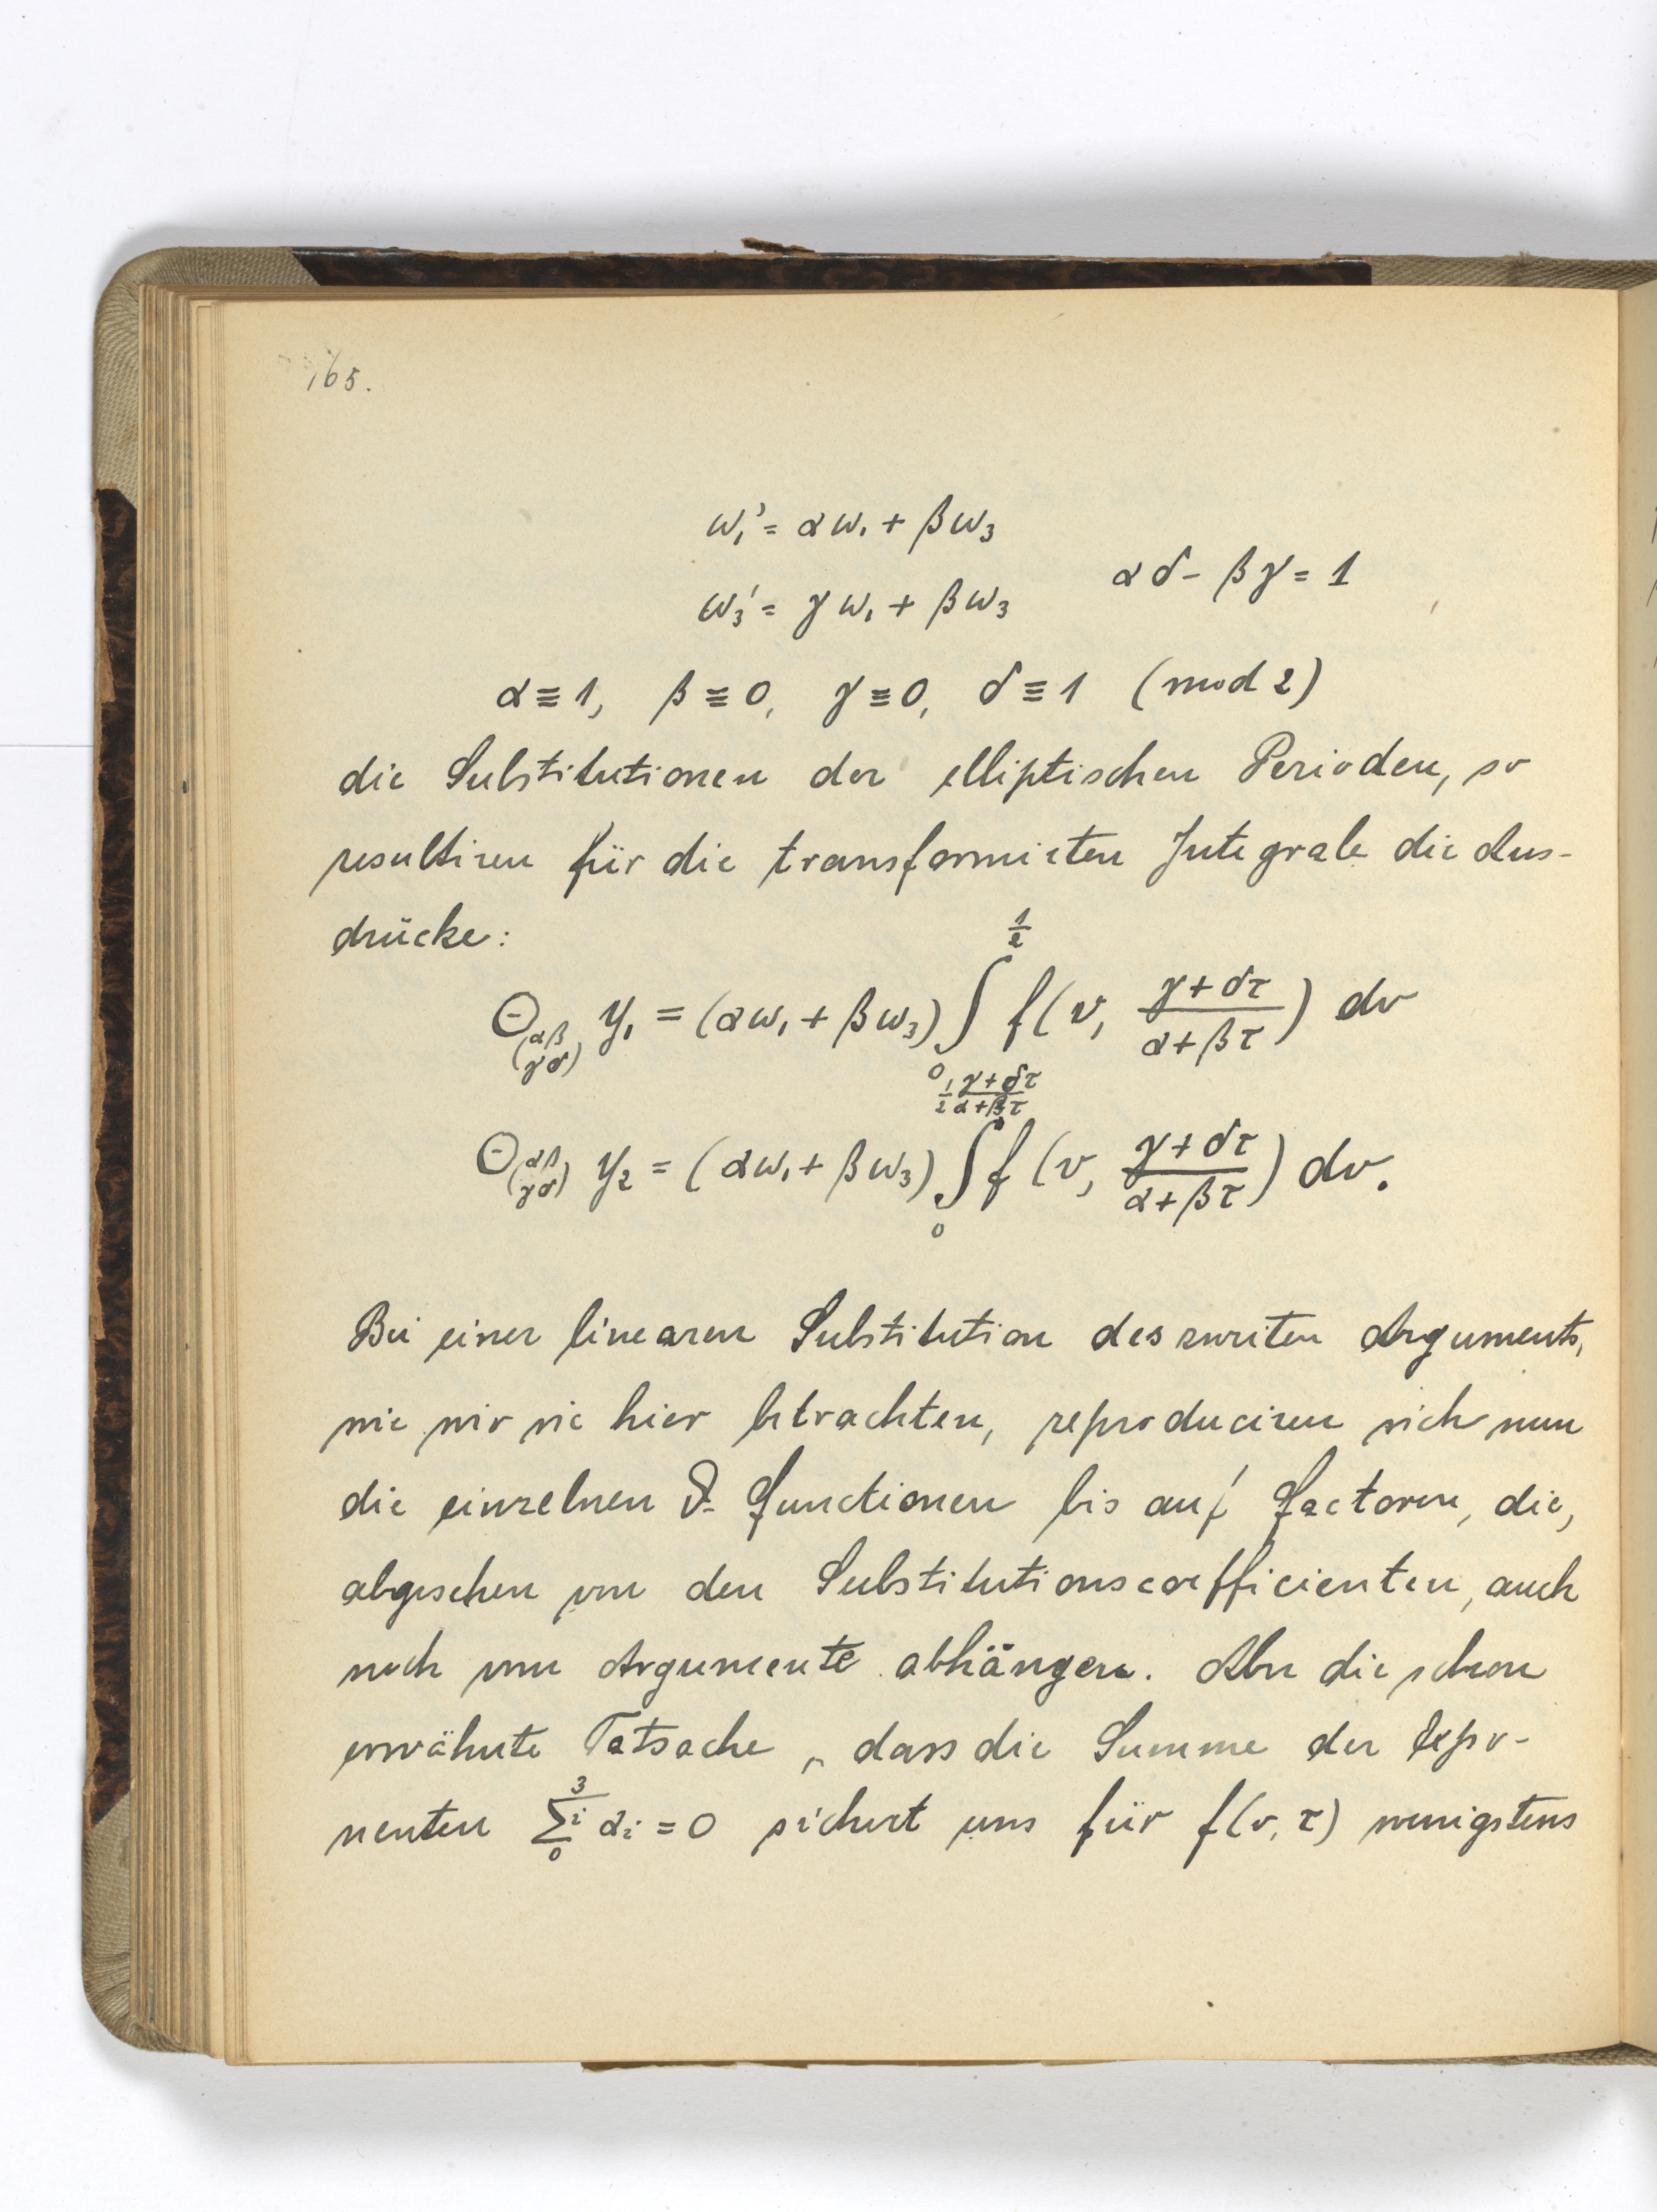 165.
ω₁' = αω₁ + βω₃
αδ - βγ = 1
ω₃' = γω₁ + βω₃
α ≡ 1, β ≡ 0, γ ≡ 0, δ ≡ 1 (mod 2)
die Substitutionen der elliptischen Perioden, so
resultiren für die transformirten Integrale die Aus-
drücke:
Θ_(αβ γδ) y₁ = (αω₁ + βω₃) ∫_0^{1/2} f(v, (γ+δτ)/(α+βτ)) dv
Θ_(αβ γδ) y₂ = (αω₁ + βω₃) ∫_0^{1/2 (γ+δτ)/(α+βτ)} f(v, (γ+δτ)/(α+βτ)) dv.
Bei einer linearen Substitution des zweiten Arguments,
wie wir sie hier betrachten, reproduciren sich nun
die einzelnen ϑ-Functionen bis auf Factoren, die,
abgesehen von den Substitutionscoefficienten, auch
noch vom Argumente abhängen. Aber die schon
erwähnte Tatsache, dass die Summe der Expo-
nenten ∑_0^3 i αᵢ = 0 sichert uns für f(v, τ) wenigstens